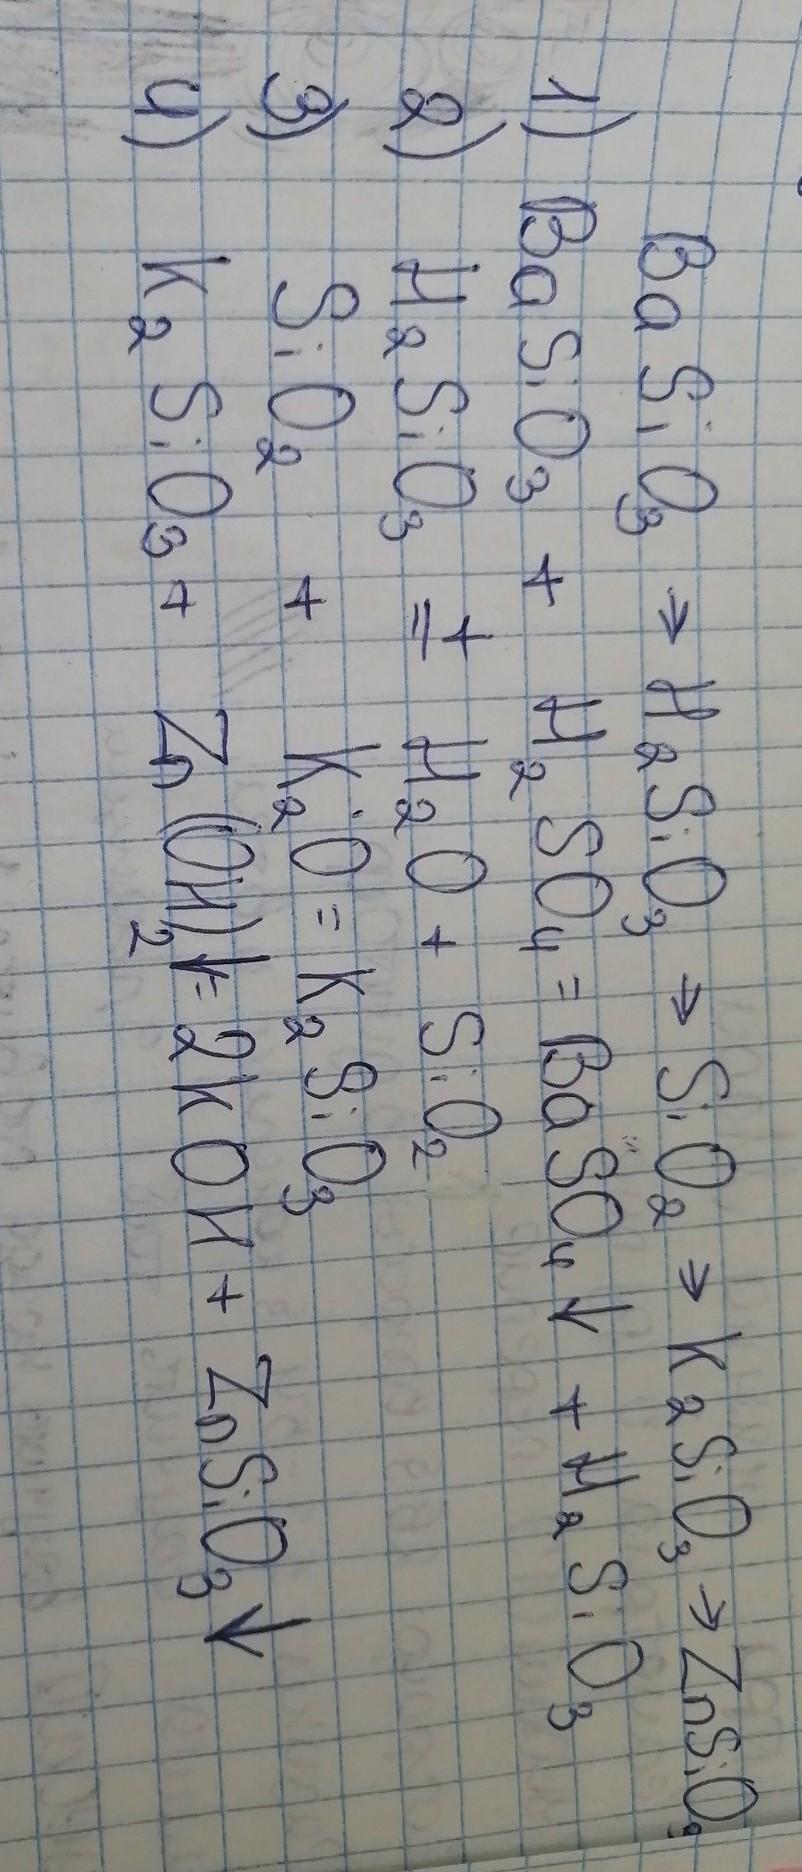 BaSiO3 → H2SiO3 → SiO2 → K2SiO3 → ZnSiO3
1) BaSiO3 + H2SO4 = BaSO4↓ + H2SiO3
2) H2SiO3 =t H2O + SiO2
3) SiO2 + K2O = K2SiO3
4) K2SiO3 + Zn(OH)2↓ = 2KOH + ZnSiO3↓